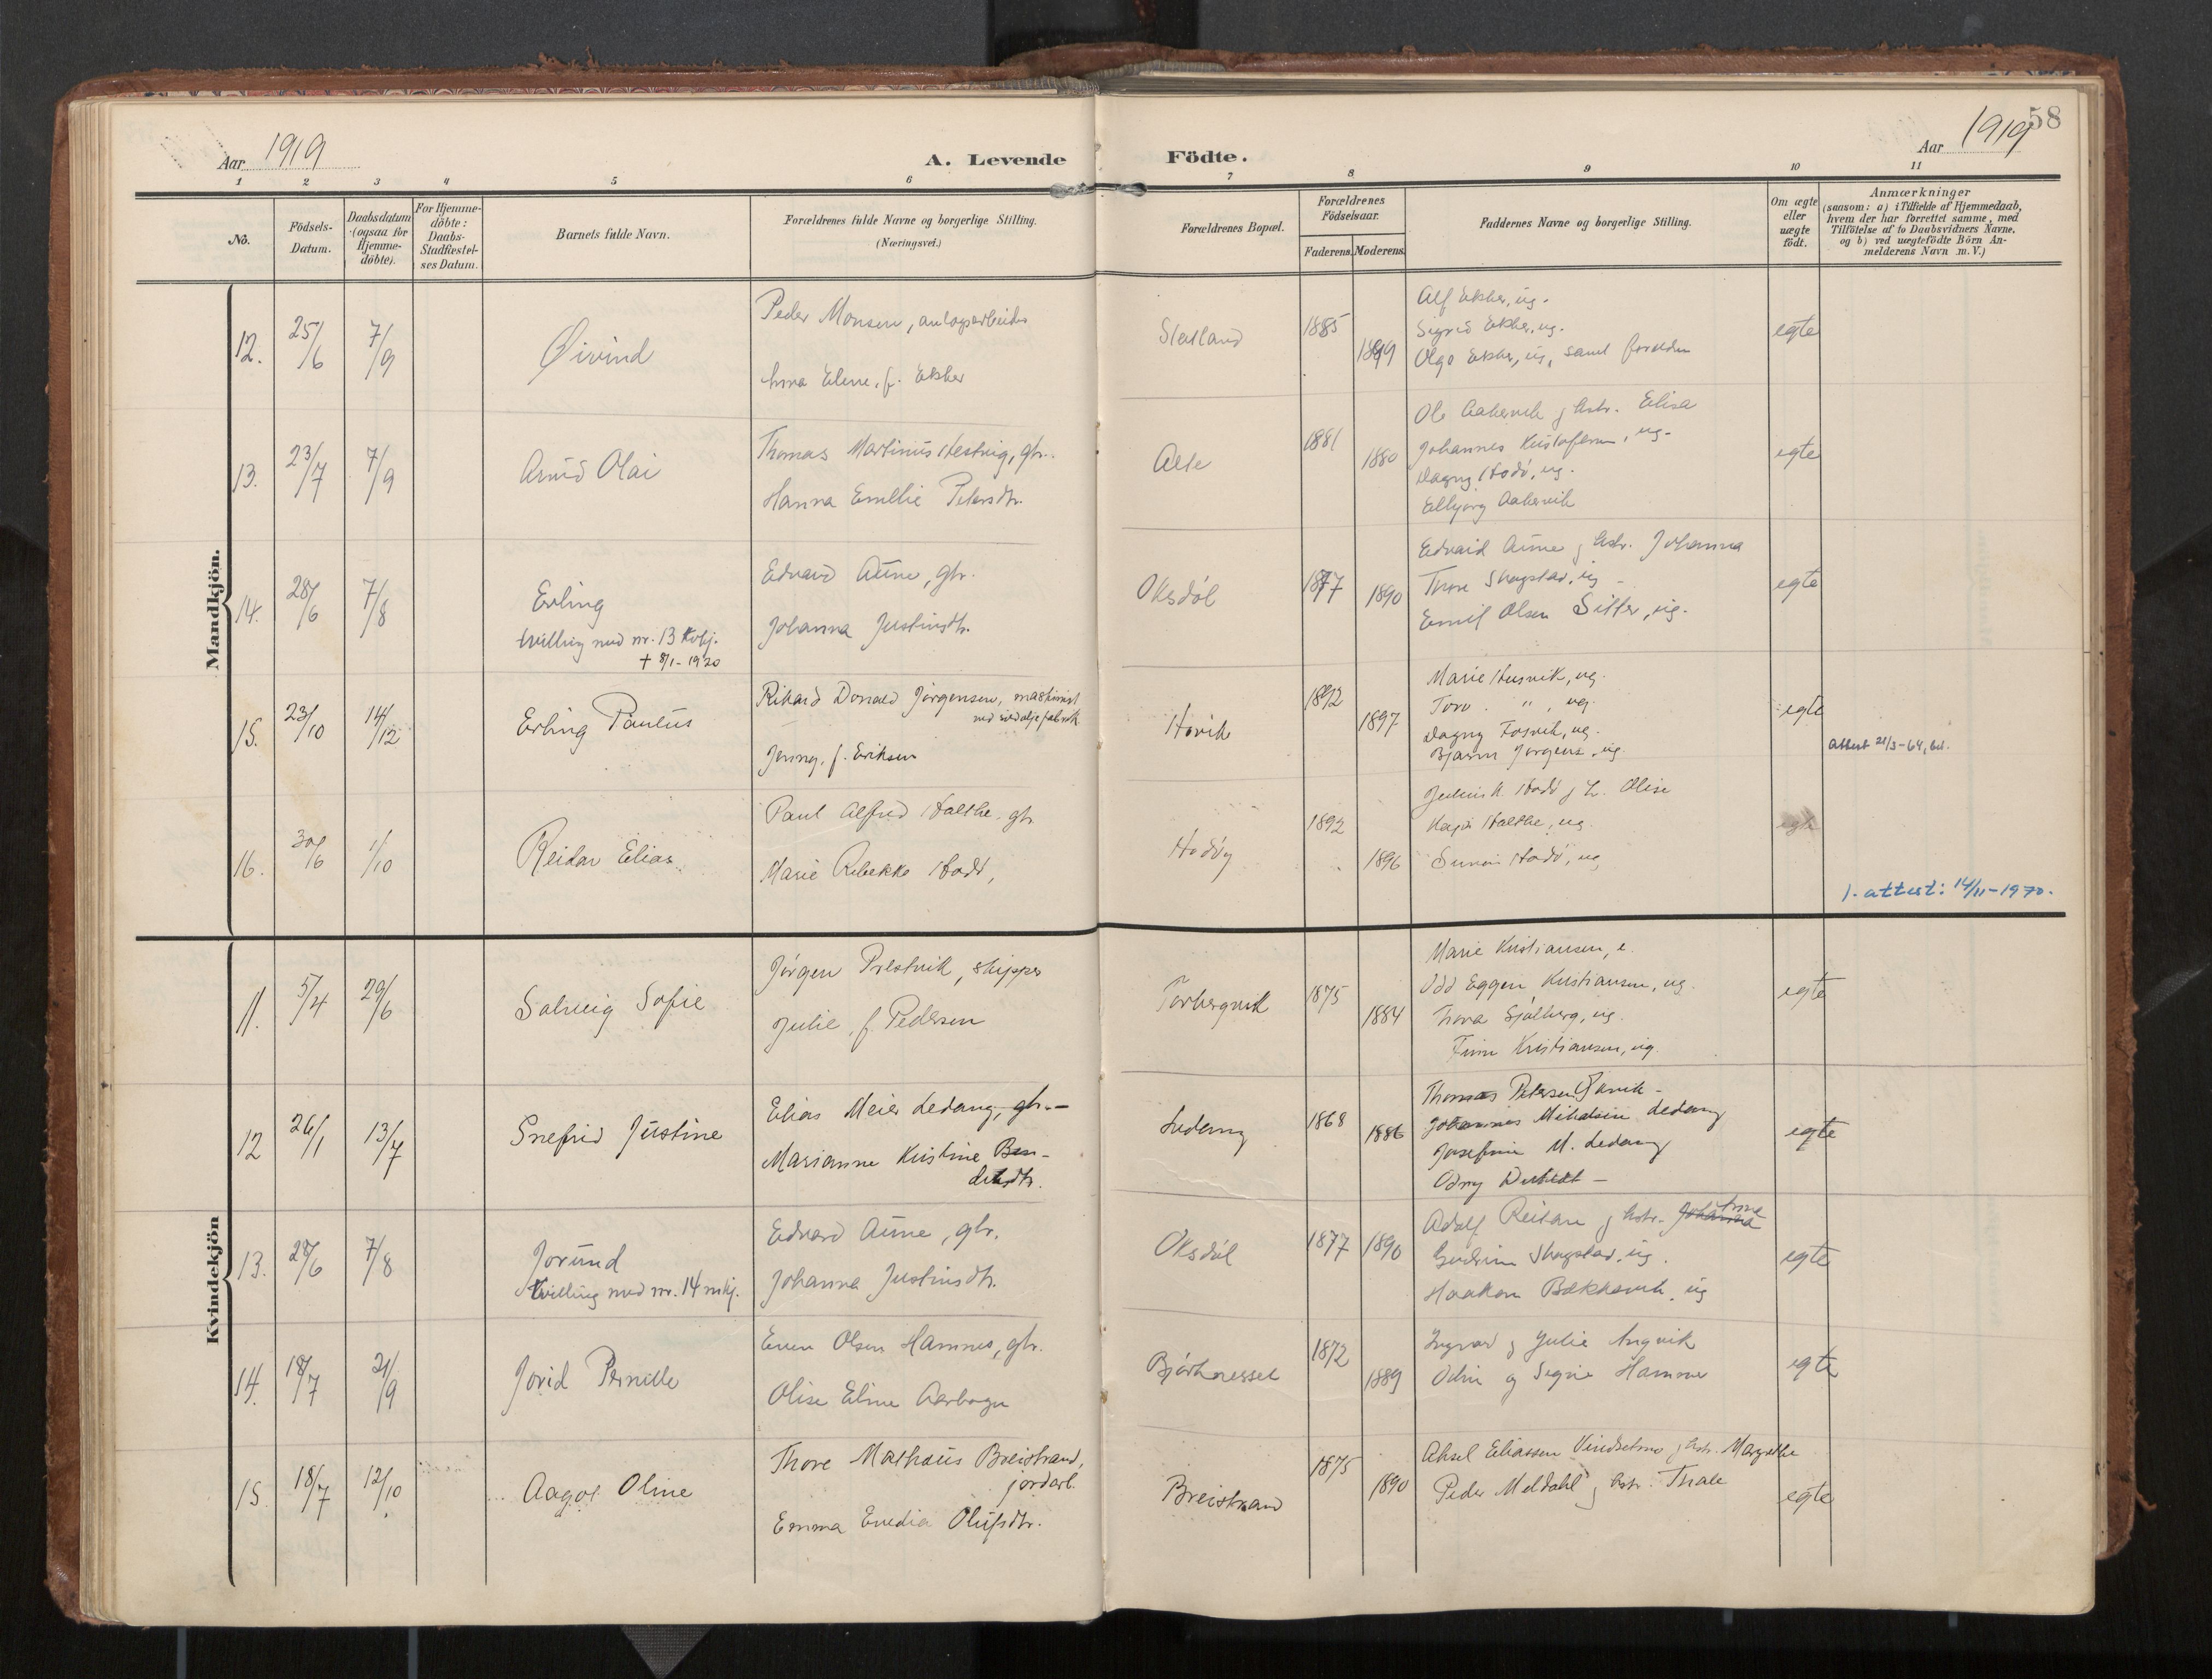 Aar 1919
A. Levende Födte.
58
Aar 1919
1 2 3 4 5 6 7 8 9 10 11
No.
Födsels-
Datum.
Daabsdatum
(ogsaa for
Hjemme-
döbte).
For Hjemme-
döbte:
Daabs-
Stadfæstel-
ses Datum.
Barnets fulde Navn.
Forældrenes fulde Navne og borgerlige Stilling.
(Næringsvei.)
Forældrenes Bopæl.
Forældrenes
Födselsaar.
Faderens. Moderens.
Faddernes Navne og borgerlige Stilling.
Om ægte
eller
uægte
födt.
Anmærkninger
(saasom: a) i Tilfælde af Hjemmedaab,
hvem der har forrettet samme, med
Tilföielse af to Daabsvidners Navne,
og b) ved uægtefödte Börn An-
melderens Navn m. V.)
Mandkjön.
12. 25/6 7/9 Øivind
Peder Monsen, anlagsarbeider
Anna Eline, f. Ekker
Sletland 1885 1899
Alf Ekker, ug.
Sigrid Ekker, ug.
Olga Ekker, ug, samt foreldr
egte
13. 23/7 7/9 Arvid Olai
Thomas Martinus Hestvig, gbr.
Hanna Emilie Petersdtr.
Alte 1881 1880
Ole Aakervik g hstr. Elisa
Johannes Kristofersen, ug.
Dagny Hodö, ug.
Eilbjörg Aakervik
egte
14. 28/6 7/8 Erling
tvilling med nr. 13 kvkj.
† 8/1-1920
Edvard Aune, gbr.
Johanna Justinsdtr.
Oksdöl 1877 1890
Edvard Aune g hstr. Johanna
Thore Skogstad, ug
Emil Olsen Sitter, ug.
egte
15. 23/10 14/12 Erling Paulus
Rikard Donald Jörgensen, maskinist
ved sildoljefabrik
Jenny, f. Eriksen
Hovik 1892 1897
Marie Husvik, ug.
Tora " , ug.
Dagny Fosvik, ug.
Bjarne Jörgens, ug.
egte
Attest 21/3-64,
16. 30/6 1/10 Reidar Elias
Paul Alfred Holthe, gbr
Marie Rebekka Hodö,
Hodöy 1892 1896
Julius A. Hodö g h. Olise
Kaja Holthe, ug.
Hodö, ug
egte
1. attest: 14/11-1970.
Kvindekjön
11. 5/4 29/6 Solveig Sofie
Jörgen Prestvik, skipper
Julie, f. Pedersen
Torbergvik 1875 1884
Marie Kristiansen, e.
Odd Eggen Kristiansen, ug.
Thora Sjölberg, ug.
Finn Kristiansen, ug.
egte
12 26/1 13/7 Snefrid Justine
Elias Meier Ledang, gbr.
Marianne Kristine Ben-
diksdtr.
Ledang 1868 1886
Thomas Petersen
Johannes Mikalsen Ledang
Josefine M. Ledang
Odny
egte
13. 28/6 7/8 Jorund
tvilling med nr. 14 mkj.
Edvard Aune, gbr.
Johanna Justinsdtr.
Oksdöl 1877 1890
Adolf Reitan g hstr. Johanna
Gudrun Skogstad, ug.
Haakon Bakkevik, ug
egte
14. 18/7 21/9 Jorid Pernille
Even Olsen Hamnes, gbr.
Olise Eline Aarbogen
Björknesset 1872 1889
Ingvar g Julie Angvik
Odin og Signe Hamnes
egte
15. 18/7 12/10 Aagot Oline
Thore Mathæus Breistrand,
jordarb.
Emma Enedia Olufsdtr.
Breistrand 1875 1890
Aksel Eliassen Vindsetmo g hstr. Margrethe
Peder Meldahl g hstr. Thale
egte